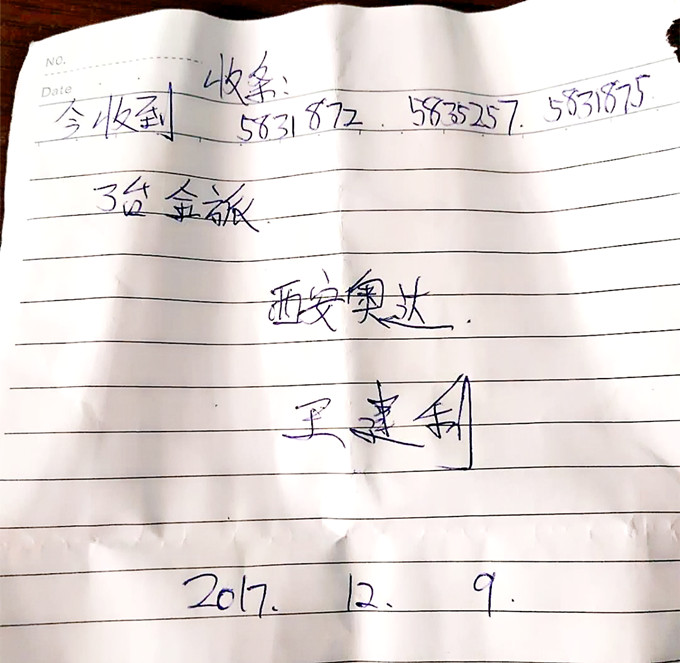 NO.
收条:
Date
今收到 5831872. 5835257. 5831875
3台金派.
西安奥达.
王建利
2017. 12. 9.